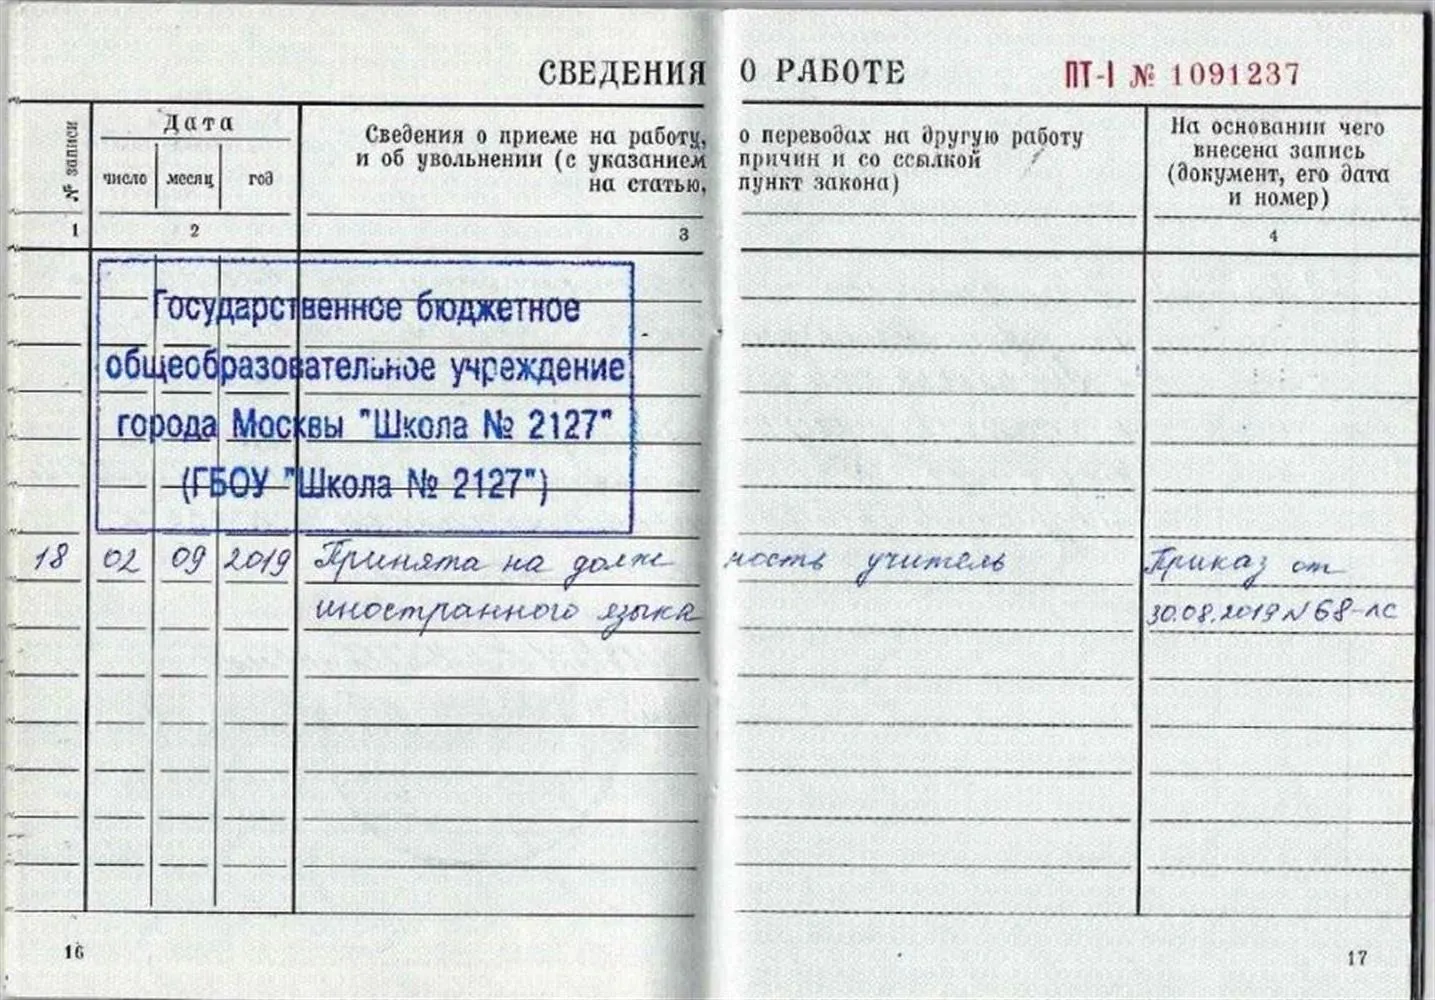 СВЕДЕНИЯ О РАБОТЕ ПТ-I № 1091237
№ записи
Дата
число месяц год
Сведения о приеме на работу, о переводах на другую работу
и об увольнении (с указанием причин и со ссылкой
на статью, пункт закона)
На основании чего
внесена запись
(документ, его дата
и номер)
1 2 3 4
Государственное бюджетное
общеобразовательное учреждение
города Москвы "Школа № 2127"
(ГБОУ "Школа № 2127")
18 02 09 2019 Принята на должность учитель Приказ от
иностранного языка 30.08.2019 N 68-лс
16 17